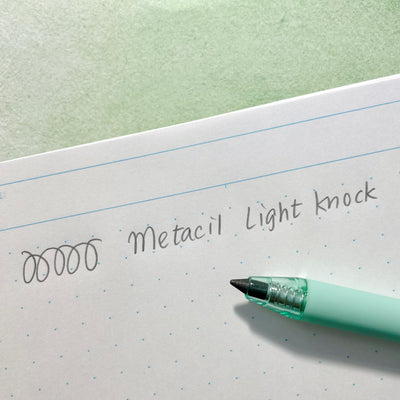 Metacil Light knock